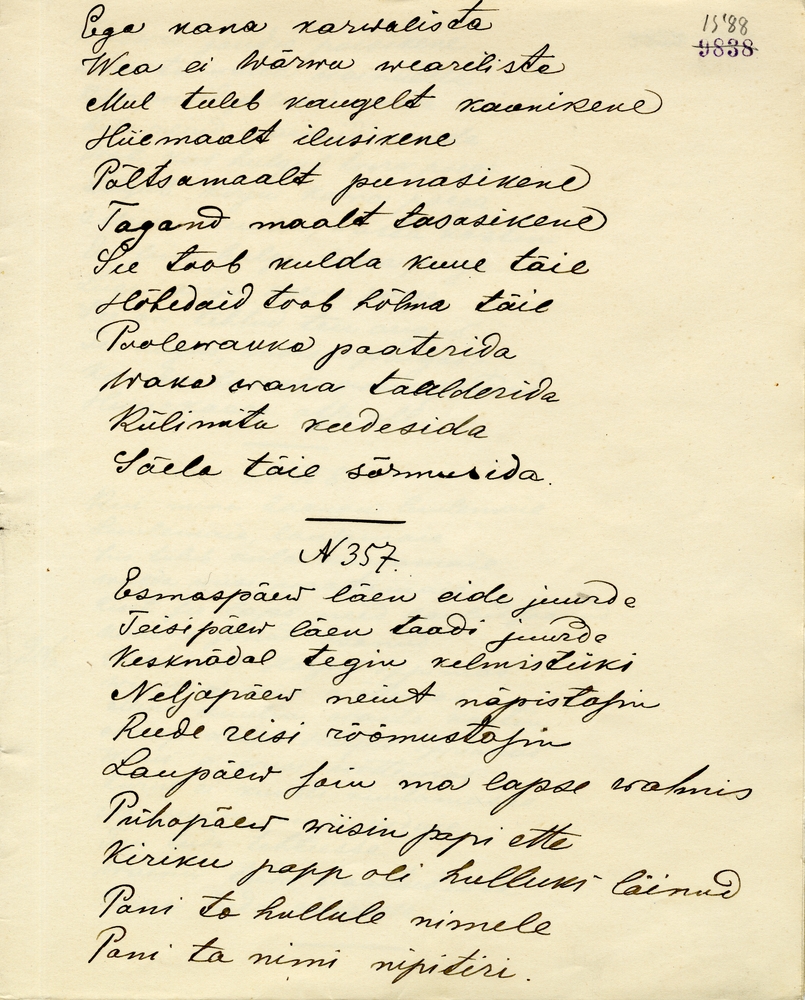 15'88
9838
Ega kana karwalista
Wea ei wärwu weareliste
Mul tuleb kaugelt kaonikene
Hiiemaalt ilusikene
Põltsamaalt punasikene
Tagand maalt tasasikene
See toob kulda kuue täie
Hõbedaid toob hõlma täie
Poolewakka paaterida
Waka wana taalderida
Külimitu keedesida
Sõela täie sõrmusida.
N 357.
Esmaspäew läen eide juurde
Teisipäew läen taadi juurde
Kesknädal tegin kelmistüki
Neljapäew neiut näpistasin
Reede reisi rõõmustasin
Laupäew sain ma lapse walmis
Pühapäew wiisin papi ette
Kiriku papp oli hulluks läinud
Pani ta hullule nimele
Pani ta nimi nipitiri.